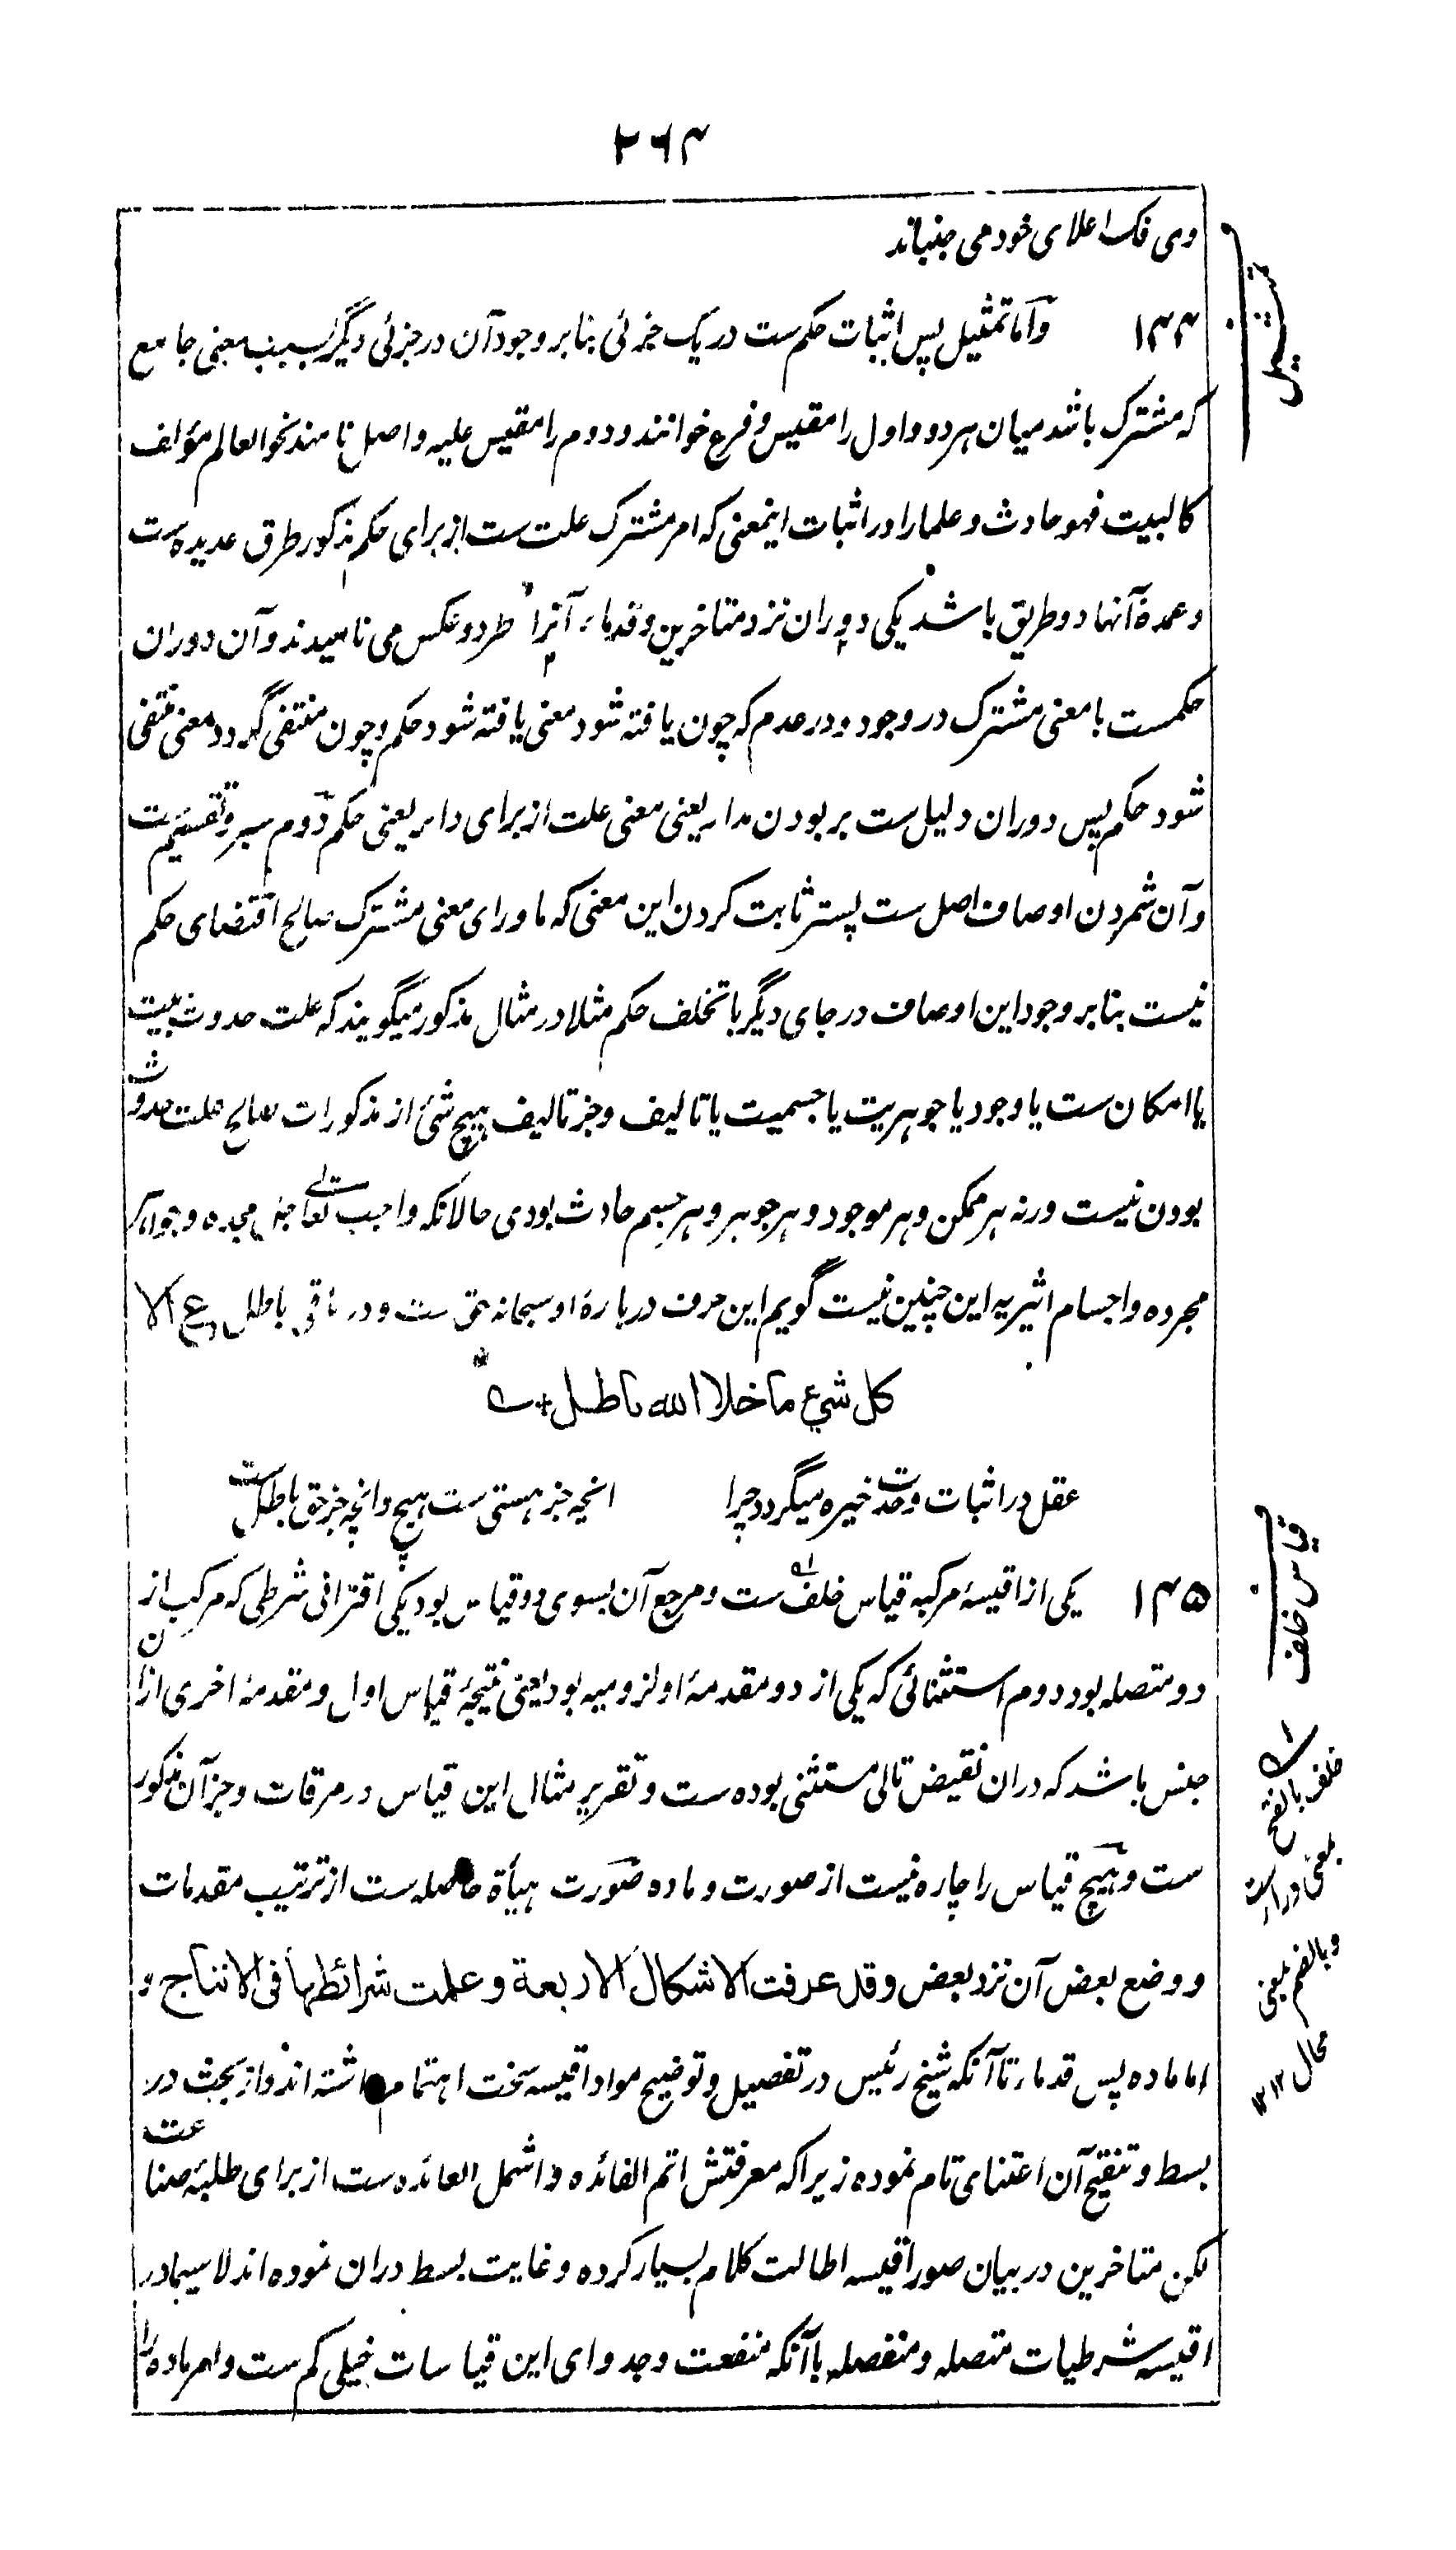 ۲۶۴
وی فک اعلای خود می جنباند
تمثیل
۱۴۴ و اما تمثیل پس اثبات حکم ست در یک جزئی بنابر وجود آن در جزئی دیگر بسبب معنی جامع
که مشترک باشد میان هر دو و اول را مقیس و فرع خوانند و دوم را مقیس علیه و اصل نامند نحو العالم مؤلف
کالبیت فهو حادث و علما را در اثبات اینمعنی که امر مشترک علت ست از برای حکم مذکور طرق عدیده ست
و عمدهٔ آنها دو طریق باشد یکی دوران نزد متاخرین و قدماء آنرا طرد و عکس می نامیدند و آن دوران
حکمست با معنی مشترک در وجود و در عدم که چون یافته شود معنی یافته شود حکم و چون منتفی گردد معنی منتفی
شود حکم پس دوران دلیل ست بر بودن مدار یعنی معنی علت از برای دائر یعنی حکم دوم سبر و تقسیم ست
و آن شمردن اوصاف اصل ست پستر ثابت کردن این معنی که ماورای معنی مشترک صالح اقتضای حکم
نیست بنابر وجود این اوصاف در جای دیگر با تخلف حکم مثلا در مثال مذکور میگویند که علت حدوث بیت
یا امکان ست یا وجود یا جوهریت یا جسمیت یا تالیف و جز تالیف هیچ شئ از مذکورات صالح علت حدوث
بودن نیست ورنه هر ممکن و هر موجود و هر جوهر و هر جسم حادث بودی حالانکه واجب تعالی جل مجده و جواهر
مجرده و اجسام اثیریه این چنین نیست گویم این حرف دربارهٔ او سبحانه حق ست و در باقی باطل ع الا
کل شیء ما خلا الله باطل
عقل در اثبات وحدت خیره میگردد چرا انچه جز هستی ست هیچ و انچه جز حق باطل ست
قیاس خلف
۱۴۵ یکی از اقیسهٔ مرکبه قیاس خلف ست و مرجع آن بسوی دو قیاس بود یکی اقترانی شرطی که مرکب از
دو متصله بود دوم استثنائی که یکی از دو مقدمهٔ او لزومیه بود یعنی نتیجهٔ قیاس اول و مقدمهٔ اخری ازان
جنس باشد که دران نقیض تالی مستثنی بوده ست و تقریر مثال این قیاس در مرقات و جز آن مذکور
ست و هیچ قیاس را چاره نیست از صورت و ماده صورت هیأة حاصله ست از ترتیب مقدمات
و وضع بعض آن نزد بعض وقد عرفت الاشکال الاربعة وعلمت شرائطها فی الانتاج و
اما ماده پس قدماء تا آنکه شیخ رئیس در تفصیل و توضیح مواد اقیسه سخت اهتمام داشته اند و از بحث در
بسط و تنقیح آن اعتنای تام نموده زیرا که معرفتش اتم الفائده و اشمل العائده ست از برای طلبهٔ صناعت
لکن متاخرین در بیان صور اقیسه اطالت کلام بسیار کرده و غایت بسط دران نموده اند لاسیما در
اقیسه شرطیات متصله و منفصله با آنکه منفعت و جدوای این قیاسات خیلی کم ست و امر ماده را
خلف بالفتح
بمعنی وراء ست
و بالضم بمعنی
محال ۱۲